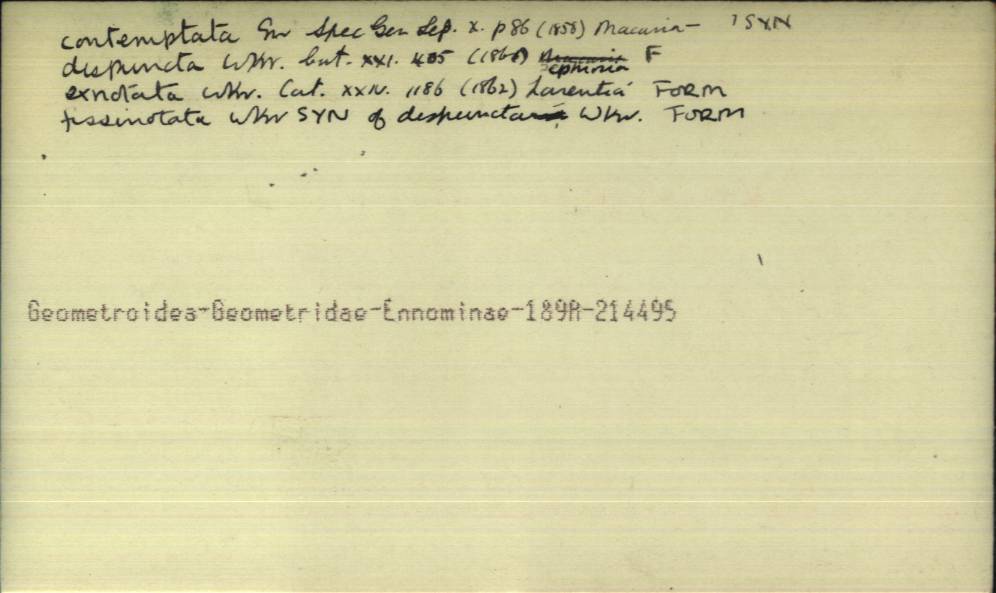 contemptata Gn Spec Gen Lep. X. p 86 (1858) Macaria — ? SYN
dispuncta Wkr. Cat. XXI. 405 (1860) F
exnotata Wkr. Cat. XXIV. 1186 (1862) Larentia FORM
fissinotata Wkr SYN of dispuncta Wkr. FORM
Geometroidea-Geometridae-Ennominae-189A-214495